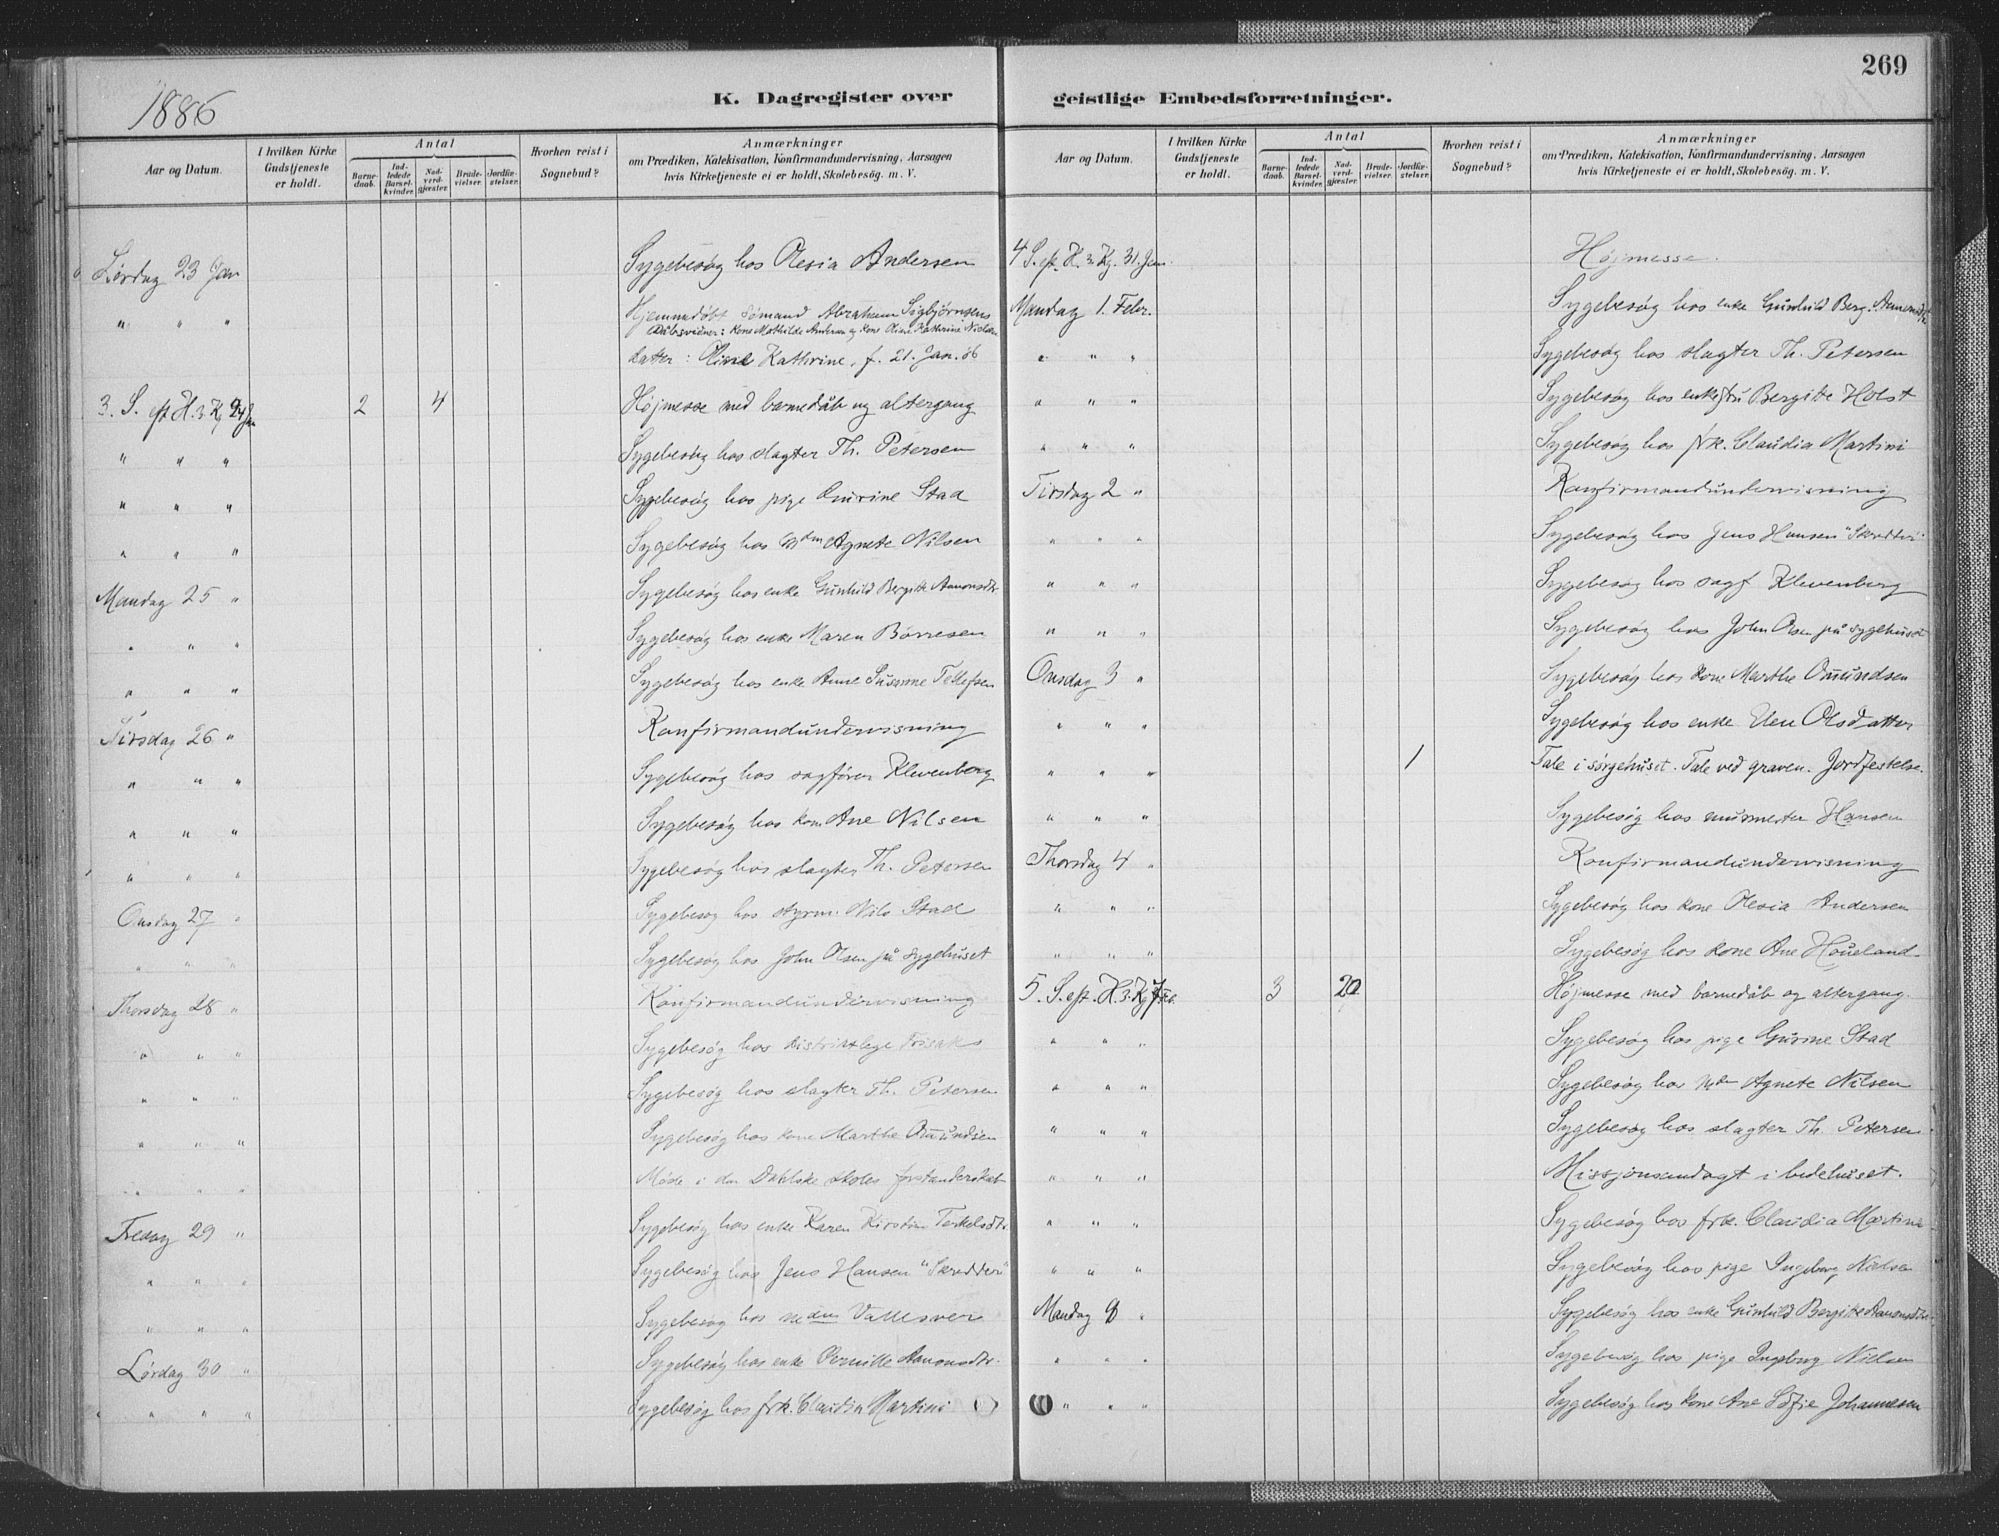 269
1886
K. Dagregister over
Aar og Datum.
I hvilken Kirke Gudstjeneste er holdt.
Antal
Barnedaab.
Indledede Barselkvinder.
Nadverdgjæster.
Brudevielser.
Jordfæstelser.
Hvorhen reist i Sognebud?
Anmærkninger
om Prædiken, Katekisation, Konfirmandundervisning, Aarsagen
hvis Kirketjeneste ei er holdt, Skolebesög. m. V.
Lørdag 23 Jan Sygebesøg hos Olesia Andersen
" " " Hjemmedøbt Sömand Abraham Sigbjörnsens
Dåbsvidner: kone Mathilde Andersen og kone Oline Kathrine Nielsen
datter: Oline Kathrine, f. 21. Jan. 86
3. S. eft H. 3. K. 24 Jan 2 4 Højmesse med barnedåb og altergang
" " " Sygebesøg hos slagter Th. Petersen
" " " Sygebesøg hos pige Gurine Stad
" " " Sygebesøg hos Mdm Agnete Nilsen
Mandag 25 " Sygebesøg hos enke Gunhild Bergitte Aanonsdtr
" " " Sygebesøg hos enke Maren Börresen
" " " Sygebesøg hos enke Anne Susanne Tellefsen
Tirsdag 26 " Konfirmandundervisning
" " " Sygebesøg hos sagfører Klevenberg
" " " Sygebesøg hos kone Ane Nilsen
" " " Sygebesøg hos slagter Th. Petersen
Onsdag 27 " Sygebesøg hos styrm. Nils Stad
" " " Sygebesøg hos John Olsen på sygehuset
Thorsdag 28 " Konfirmandundervisning
" " " Sygebesøg hos distriktslege Frisak
" " " Sygebesøg hos slagter Th. Petersen
" " " Sygebesøg hos kone Marthe Omundsen
" " " Møde i den Dahlske skoles forstanderskab
Fredag 29 " Sygebesøg hos enke Karen Kirstine Terkelsdtr
" " " Sygebesøg hos Jens Hansen "Skredderi"
" " " Sygebesøg hos mdm Vallesver
Lørdag 30 " Sygebesøg hos enke Pernille Aanonsdtr.
" " " Sygebesøg hos frk. Claudia Martini
geistlige Embedsforretninger.
Aar og Datum.
I hvilken Kirke Gudstjeneste er holdt.
Antal
Barnedaab.
Indledede Barselkvinder.
Nadverdgjæster.
Brudevielser.
Jordfæstelser.
Hvorhen reist i Sognebud?
Anmærkninger
om Prædiken, Katekisation, Konfirmandundervisning, Aarsagen
hvis Kirketjeneste ei er holdt, Skolebesög. m. V.
4 S. eft. H. 3. Kg. 31. Jan. Højmesse.
Mandag 1. Febr. Sygebesøg hos enke Gunhild Berg. Aanonsdtr
" " " Sygebesøg hos slagter Th. Petersen
" " " Sygebesøg hos enkefru Bergitte Holst
" " " Sygebesøg hos frk. Claudia Martini
Tirsdag 2 " Konfirmandundervisning
" " " Sygebesøg hos Jens Hansen "Skredderi"
" " " Sygebesøg hos sagf Klevenberg
" " " Sygebesøg hos John Olsen på sygehuset
Onsdag 3 " Sygebesøg hos kone Marthe Omundsen
" " " Sygebesøg hos enke Elen Olsdatter
" " " 1 Tale i sørgehuset. Tale ved graven. Jordfestelse.
" " " Sygebesøg hos murmester Hansen
Thorsdag 4 " Konfirmandundervisning
" " " Sygebesøg hos kone Olesia Andersen
" " " Sygebesøg hos kone Ane Houeland
5. S. eft. H. 3. Kg 7 Feb. 3 20 Højmesse med barnedåb og altergang.
" " " Sygebesøg hos pige Gurine Stad
" " " Sygebesøg hos Mdm Agnete Nilsen
" " " Sygebesøg hos slagter Th. Petersen
" " " Missjonsandagt i bedehuset.
" " " Sygebesøg hos frk. Claudia Martini
" " " Sygebesøg hos pige Ingeborg Nielsen
Mandag 8 " Sygebesøg hos enke Gunhild Bergitte Aanonsdtr.
" " " Sygebesøg hos pige Ingeborg Nielsen
" " " Sygebesøg hos kone Ane Sofie Johannesen